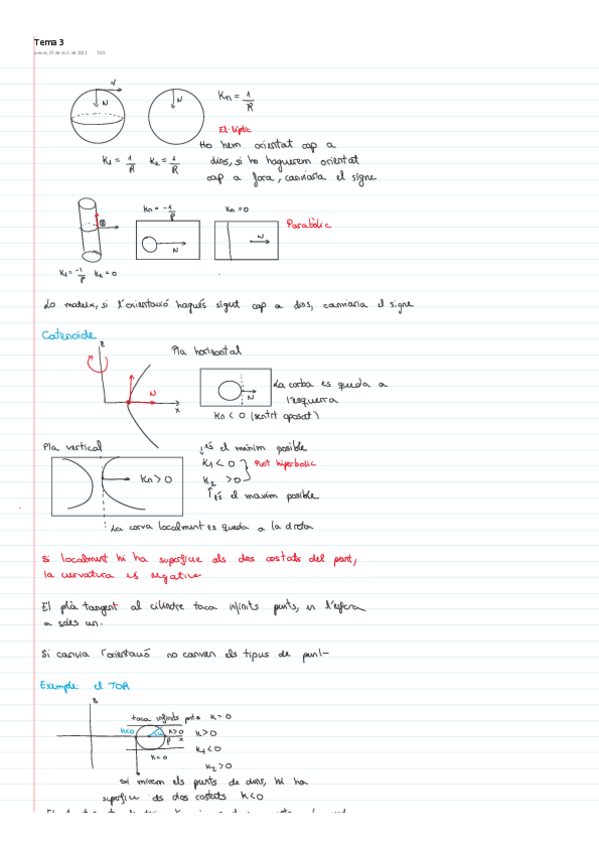 Tema 3
N
N
Kn = 1/R
El·líptic
Ho hem orientat cap a
K1 = 1/R K2 = 1/R
dins, si ho haguerem orientat
cap a fora, canviaria el signe
Kn = -1/P
Kn = 0
N
N
Parabòlic
K1 = -1/P K2 = 0
Lo mateix, si l'orientació hagués sigut cap a dins, canviaria el signe
Catenoide
z
Pla horizontal
N
x
N
La corba es queda a
l'esquerra
Kn < 0 (sentit oposat)
Pla vertical
és el mínim possible
Kn > 0
K1 < 0
Punt hiperbòlic
K2 > 0
és el maxim possible
La corva localment es queda a la dreta
Si localment hi ha superficie als dos costats del punt,
la curvatura es negativa
El plà tangent al cilindre toca infinits punts, en l'esfera
a soles un.
Si canvia l'orientació no canvien els tipus de punt
Exemple: el TOR
z
toca infinits punts K = 0
K<0
K>0
K > 0
P
x
K1 < 0
K = 0
K2 > 0
Si mirem els punts de dins, hi ha
superficie als dos costats K < 0